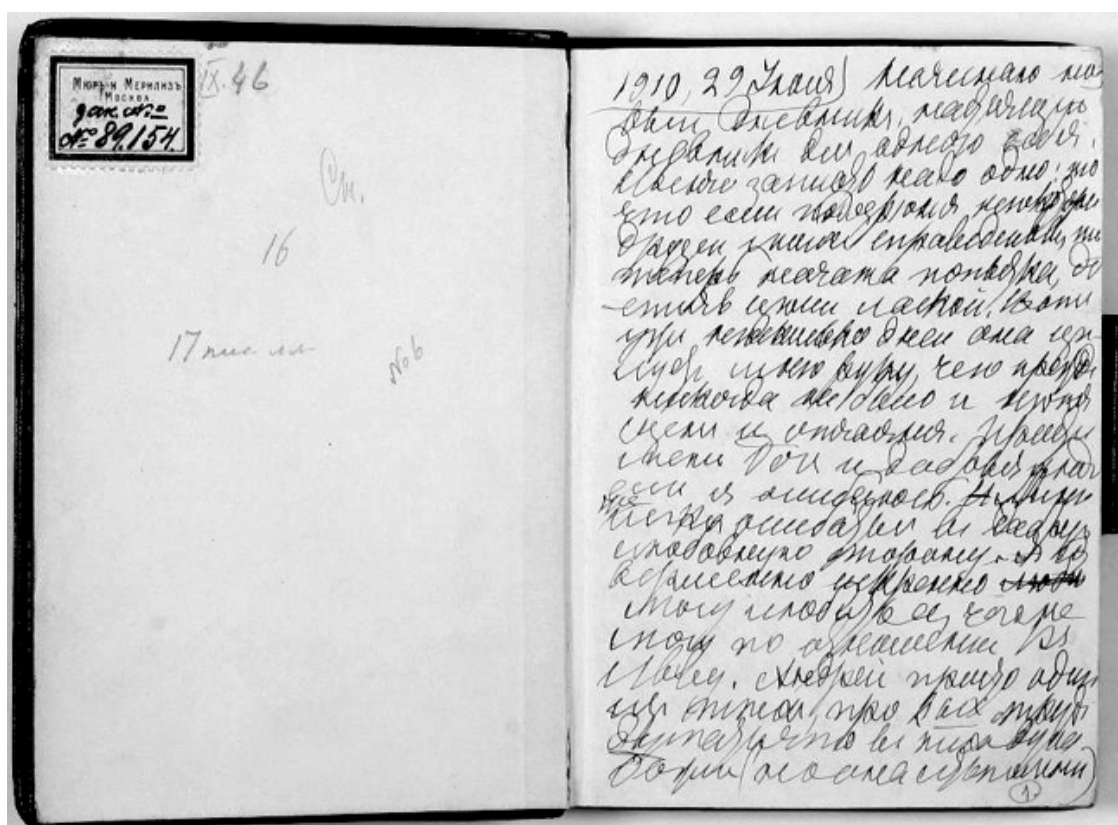 Мюръ и Мерилизъ
Москва
зак. №
№ 89.154.
IX.46
Сн.
16
17
No 6
1910, 29 Июля) Начинаю но
вый дневникъ, настоящiй
дневникъ для одного себя.
Нынче записать надо одно: то
что если подозренiя некоторых
друзей моихъ справедливы, то
теперь начата попытка до
стичь цѣли лаской. Вотъ
уже несколько дней она цѣ
луетъ мнѣ руку, чего прежде
никогда не было и нѣтъ
сценъ и отчаянiя. Прости
меня Богъ и добрыя люди
если я ошибаюсь. Мнѣ же
легко ошибаться въ добрую
любовную сторону. Я со
вершенно искренно
могу любить ее, чего не
могу по отношенiи къ
Леву. Андрей просто один
изъ тѣхъ, про кот трудн
думать что въ нихъ душа
Божiя (но она есть помни)
1.